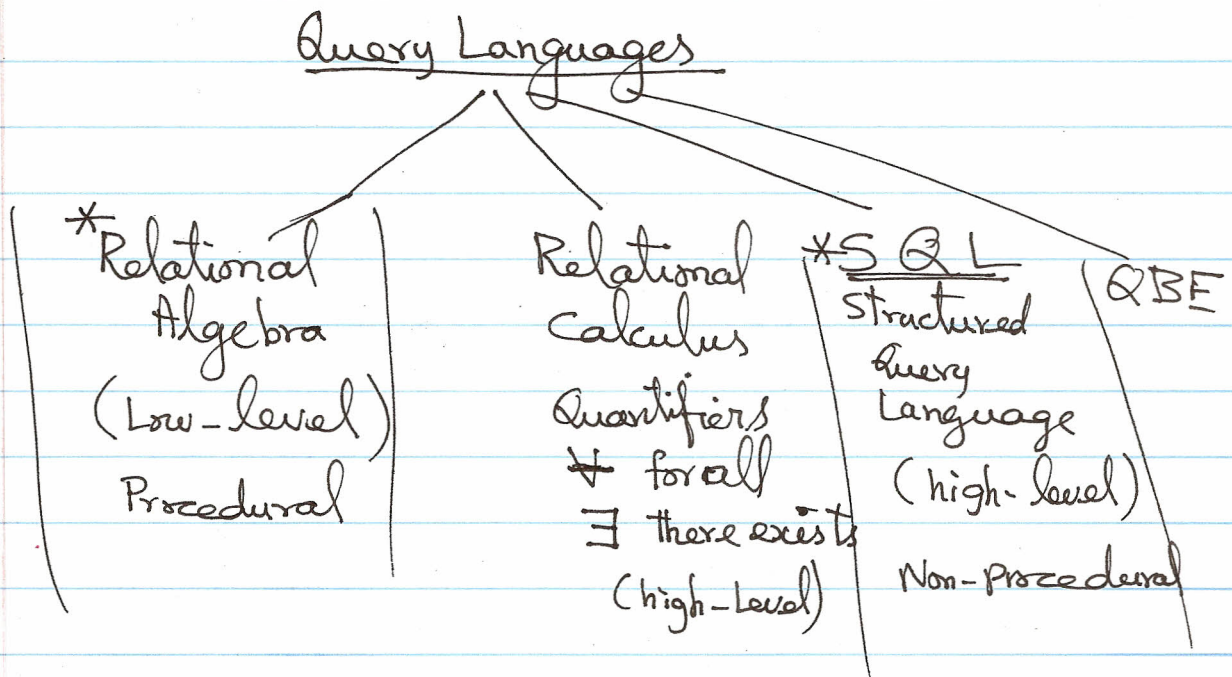 Query Languages
*Relational
Algebra
(Low-level)
Procedural
Relational
Calculus
Quantifiers
∀ for all
∃ there exists
(high-Level)
*SQL
Structured
Query
Language
(high-level)
Non-Procedural
QBE